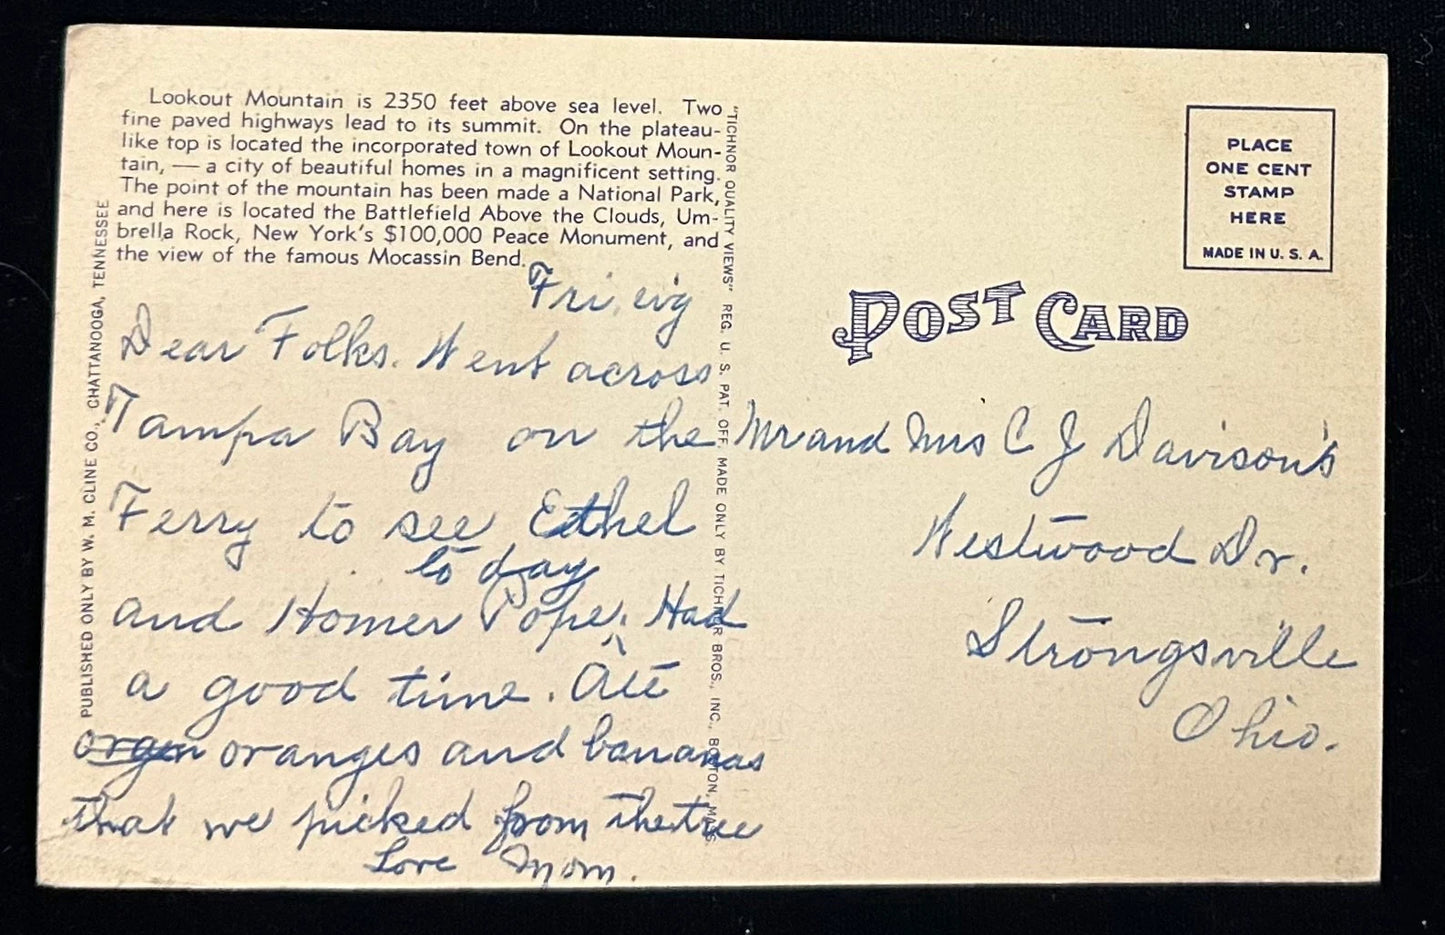 Lookout Mountain is 2350 feet above sea level. Two
fine paved highways lead to its summit. On the plateau-
like top is located the incorporated town of Lookout Moun-
tain, — a city of beautiful homes in a magnificent setting.
The point of the mountain has been made a National Park,
and here is located the Battlefield Above the Clouds, Um-
brella Rock, New York's $100,000 Peace Monument, and
the view of the famous Mocassin Bend.
Fri. ev'g
Dear Folks. Went across
Tampa Bay on the
Ferry to see Ethel
to day
and Homer Pope. Had
a good time. Ate
orgen oranges and bananas
that we picked from the tree
Love Mom.
PUBLISHED ONLY BY W. M. CLINE CO., CHATTANOOGA, TENNESSEE
"TICHNOR QUALITY VIEWS" REG. U. S. PAT. OFF. MADE ONLY BY TICHNOR BROS., INC., BOSTON, MASS.
PLACE
ONE CENT
STAMP
HERE
MADE IN U. S. A.
POST CARD
Mr and Mrs C J Davison's
Westwood Dr.
Strongsville
Ohio.